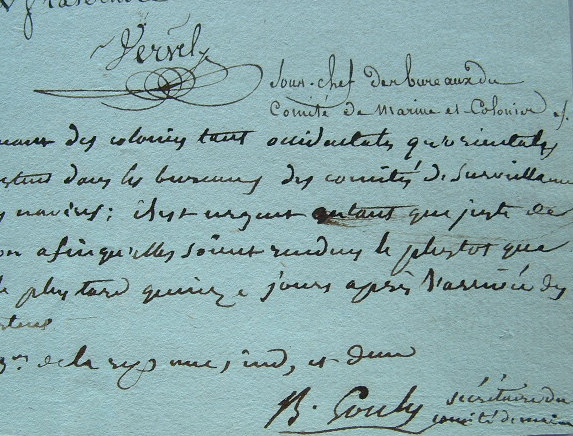 Vervel
Sous-chef des bureaux du
Comité de Marine et Colonies
des colonies tant occidentales qu'orientales
dans les bureaux des comités de Surveillance
navires; il est urgent autant que juste de
afin qu'elles soient rendues le plustot que
plus tard quinze jours après l'arrivée des
de la rep. une, ind, et dem
B. Gouly secrétaire du
comité de marine